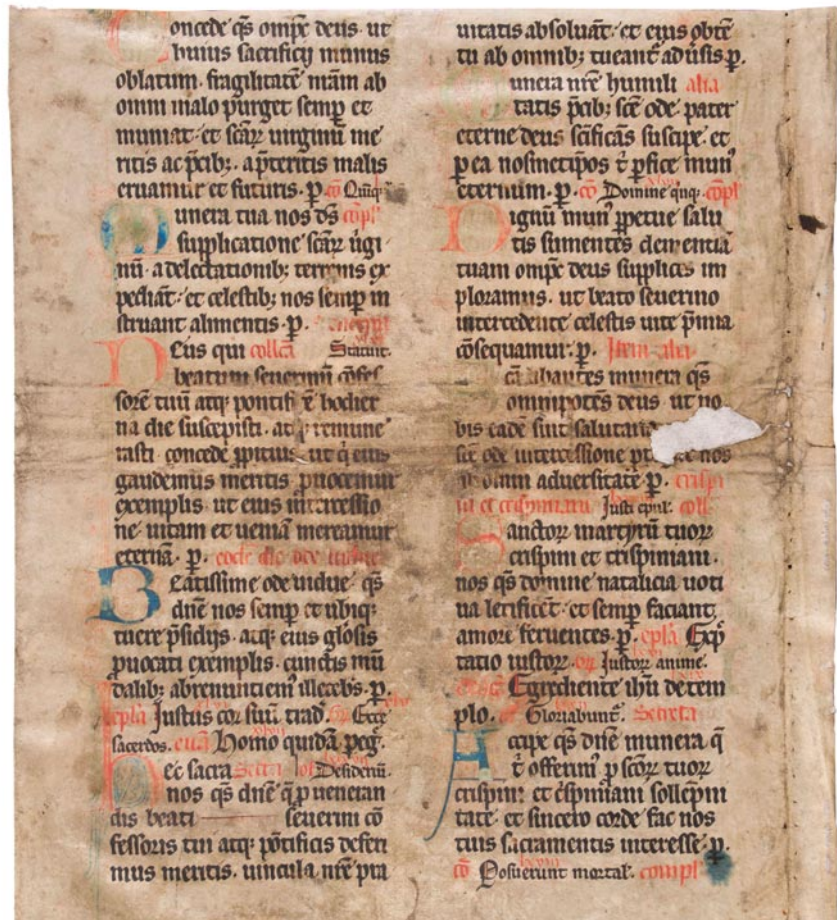 Concede q̄s omp̄e deus ut
huius sacrificij munus
oblatum fragilitatē nr̄am ab
omni malo purget semp̱ et
muniat et scāꝝ uirginū me
ritis ac p̄cibꝫ a p̄teritis malis
eruamur et futuris. p. cō Quīqꝫ
Munera tua nos ds̄ cōpl̄
supplicatione scāꝝ ūgi
nū a delectationibꝫ terrenis ex
pediāt et celestibꝫ nos semp̱ in
struant alimentis. p.
Deus qui collcā Statuit.
beatum seuerinū cōfes
sorē tuū atqꝫ pontif ē hodier
na die suscepisti atqꝫ remune
rasti concede ꝓpitius ut q̄ eius
gaudemus meritis prouocemur
exemplis ut eius intercessio
ne uitam et ueniā mereamur
eternā. p. eodē die ode uidue
Beatissime ode uidue q̄s
dn̄e nos semp̱ et ubiqꝫ
tuere p̄sidijs atqꝫ eius gl̄osis
prouocati exemplis cunctis mū
dalibꝫ abrenuntiem᾽ illecebris. p.
epl̄a Justus cor suū trad̄. gr̄ Ecce
sacerdos. euā Homo quidā peg̃.
Hec sacra Secta of Desideriū.
nos q̄s dn̄e q̄ p̱ ueneran
dis beati seuerini cō
fessoris tui atqꝫ pōtificis deferi
mus meritis. uincula nr̄e pra
uitatis absoluāt et eius obtē
tu ab omnibꝫ tueant᷑ adūsis p.
Munera nr̄e humili alia
tatis p̄cibꝫ scē ode pater
eterne deus sc̄ificās suscipe et
p̱ ea nosmetip̄os t̄ p̱fice mun᾽
eternum. p. cō Domine quīqꝫ. cōpl̄
Dignū mun᾽ p̱petue salu
tis sumentes clementiā
tuam omp̄e deus supplices im
ploramus. ut beato seuerino
intercedente celestis uite p̄mia
cōsequamur. p. Item alia
omnipotēs deus ut no
bis eadē sint salutaria
scē ode intercessione nos
in omni adversitate p. crispi
ni et crispiniani Justi epul̄. coll̄
Sanctoꝝ martyrū tuoꝝ
crispini et crispiniani.
nos q̄s domine natalicia uoti
ua letificēt et semp̱ faciant
amore feruentes. p. epl̄a Exp̄
tatio iustoꝝ. gr̄ Justoꝝ anime.
Egrediente ih̄u de tem
plo. of Gloriabunt᷑. Secreta
Accipe q̄s dn̄e munera q̄
t̄ offerim᾽ p̱ scōꝝ tuoꝝ
crispini et c̄spiniani sollēpni
tate et sincero corde fac nos
tuis sacramentis interesse. p.
cō Posuerunt mortal᾽. compl̄